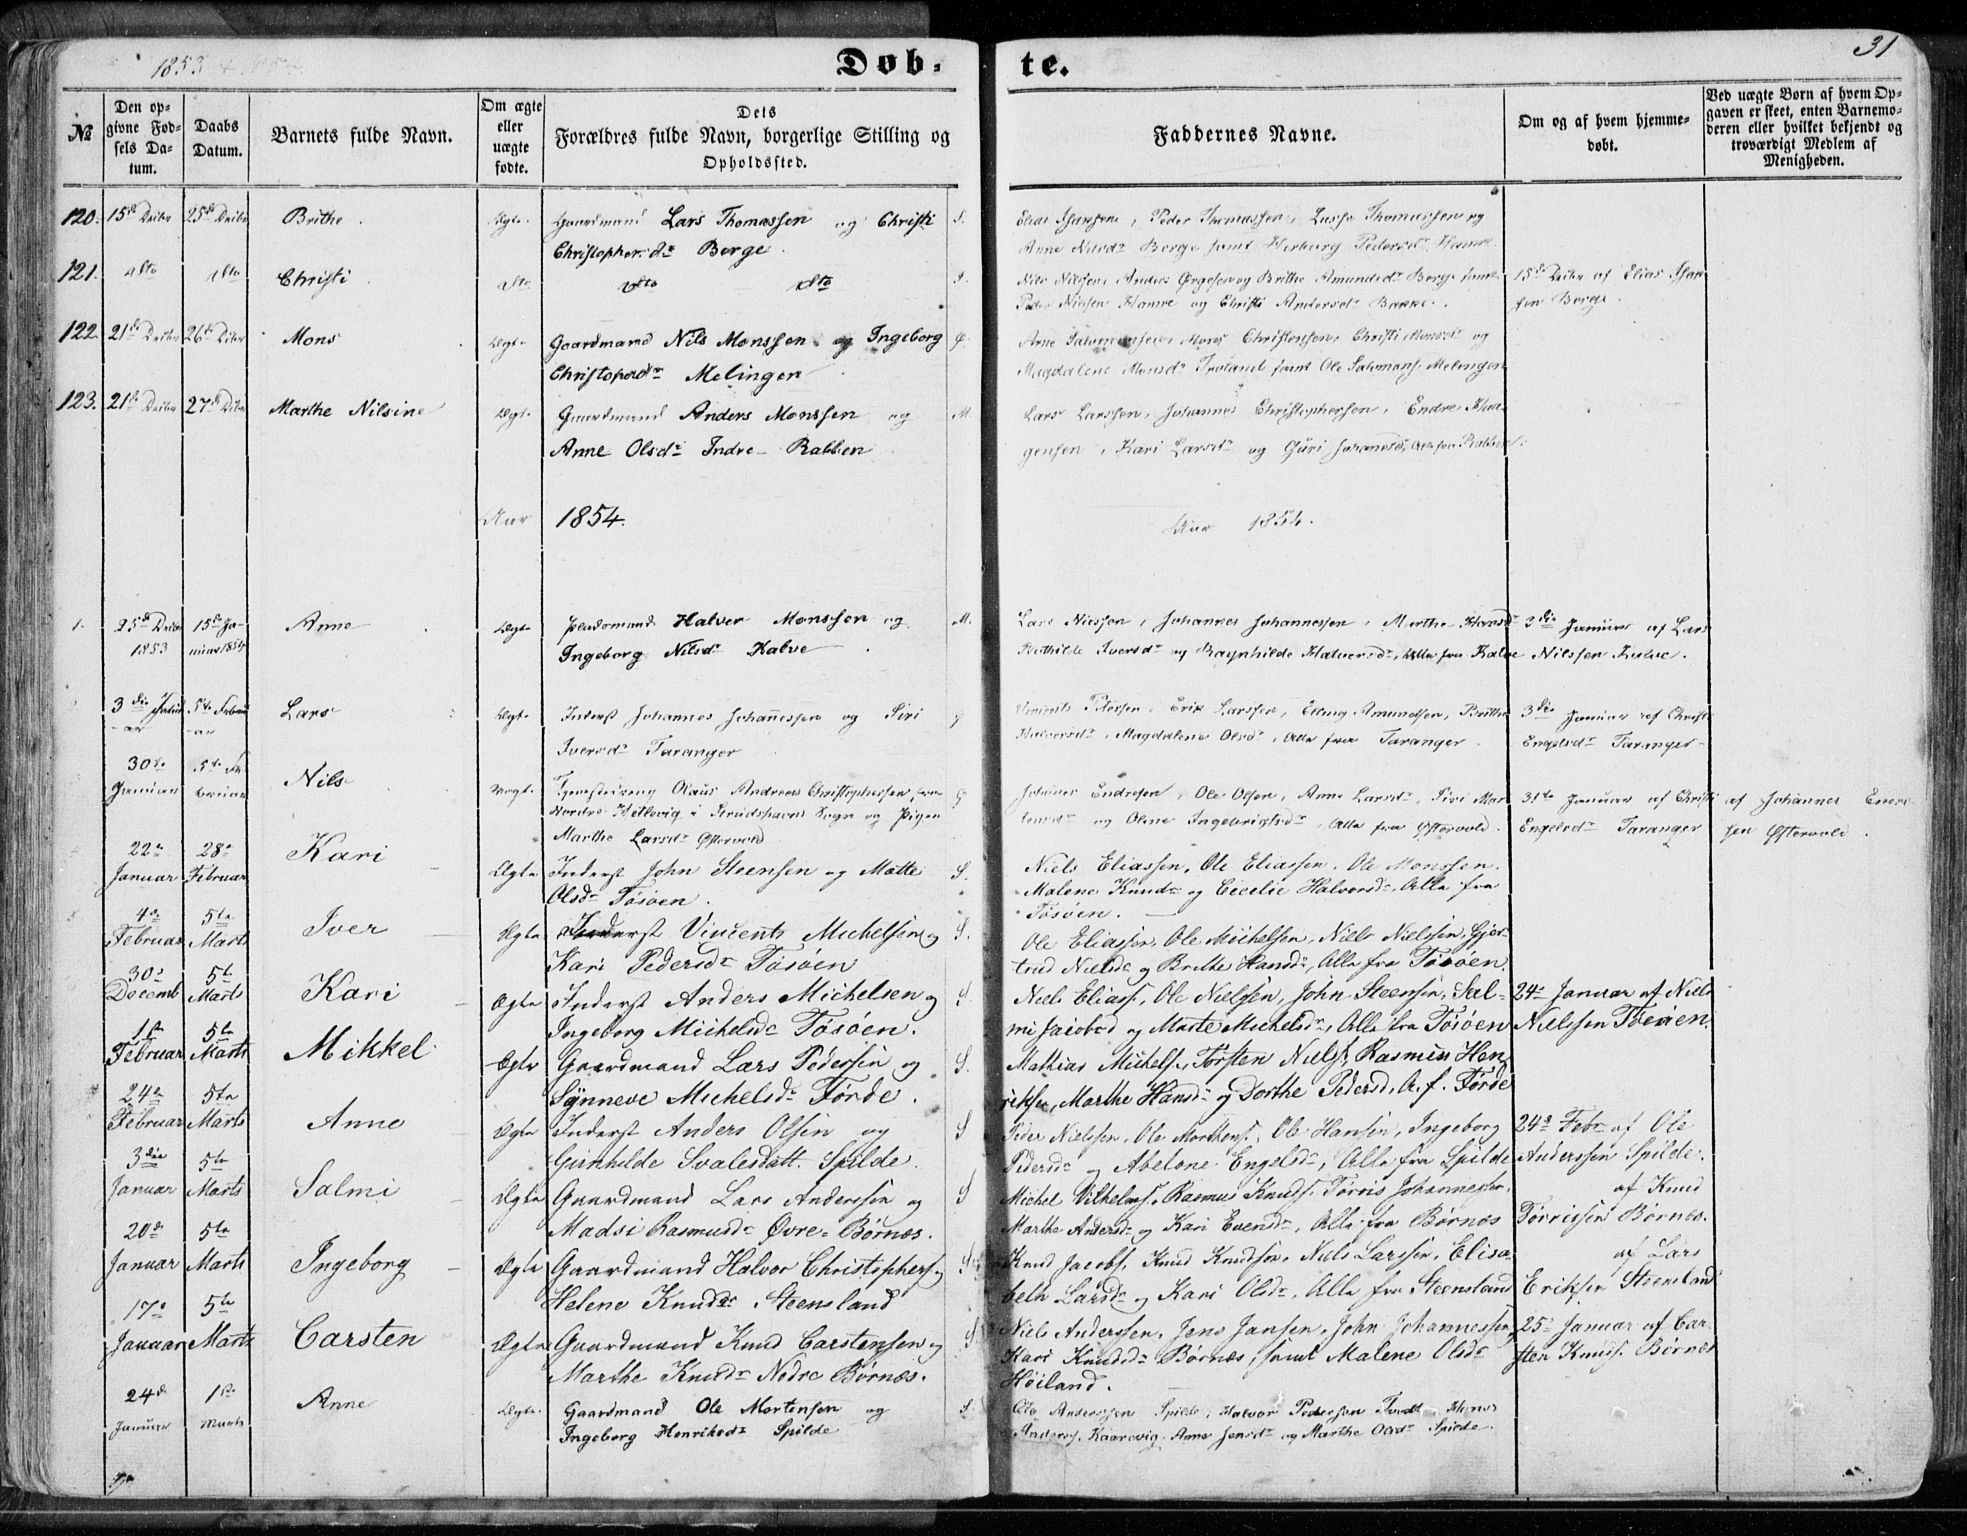 1853
Døb-
te.
31
No
Den op-
givne Fød-
sels Da-
tum.
Daabs
Datum.
Barnets fulde Navn.
Om ægte
eller
uægte
fødte.
Dets
Forældres fulde Navn, borgerlige Stilling og
Opholdssted.
Faddernes Navne.
Om og af hvem hjemme-
døbt.
Ved uægte Børn af hvem Op-
gaven er skeet, enten Barnemo-
deren eller hvilket bekjendt og
troværdigt Medlem af
Menigheden.
120. 15de Decbr 25de Decbr Brithe Ægte Gaardmand Lars Thomassen og Christi S.
Christophersdr Berge
Peder Thomassen, Lasse Thomassen og
Anne Berge samt Herborg Pedersdr Hamre
121. dto dto Christi dto dto dto S.
Nils Nilsen, Anders og Brithe Amundsdr Berge samt 15de Decbr af Elias
Peder Nilsen Hamre og Christi Andersdr Bakke. Berge.
122. 21de Decbr 26de Decbr Mons Ægte Gaardmand Nils Monssen og Ingeborg
Christophersdr Melingen
Arne Salomonsen, Mons Christensen, Christi Monsdr og
Magdalene Monsdr Troland samt Ole Salomons. Melingen
123. 21de Decbr 27de Decbr Marthe Nilsine Ægte Gaardmand Anders Monssen og M
Anne Olsdr Indre Rabben
Lars Larssen, Johannes Christophersen, Endre
Kari Larsdr og Guri Johannesdr, Alle fra Rabben.
Aar 1854.
Aar 1854.
1. 25de Decbr 15de Ja- Anne Ægte Halver Monssen og M.
1853 nuar 1854 Ingeborg Nilsdr Kalve
Lars Nilssen, Johannes Johannessen, Marthe Hansdr 3die Januar af Lars
Bothilde Iversdr og Ragnhilde Halversdr, Alle fra Kalve Nilssen Kalve.
3die Janu- 5te Febru- Lars Ægte Inderst Johannes Johannessen og Siri
ar ar Iversdr Taranger
Petersen, Erik Larssen, Elling Amundsen, Brithe 3die Januar af Christi
Halversdr, Magdalene Olsdr, Alle fra Taranger. Engelsdr Taranger
30te 5te Fe- Nils
Januar bruar Uægte Tjenestedreng Olaus Andreas Christophersen fra
Nordre Hetlevig i Strudshavns Sogn og Pigen
Marthe Larsdr Østervold
Johannes Endresen, Ole Olsen, Anne Larsdr, Siri Mor- 31te Januar af Christi af Johannes
tensdr og Oline Ingebrigtsdr, Alle fra Østervold. Engelsdr Taranger sen Østervold.
22de 28de Kari
Januar Februar Ægte Inderst John Steensen og Mætte S.
Olsdr Tøsøen.
Niels Eliassen, Ole Eliassen, Ole Monssen.
Malene Knudsdr og Cecilie Halvorsdr, Alle fra
Tøsøen.
4de 5te Iver
Februar Marts Ægte Inderst Vincents Michelsen og S.
Kari Pedersdr Tøsøen
Ole Eliassen, Ole Michelsen, Niels Nielssen, Gjer-
trud Nielsdr og Brithe Hansdr, Alle fra Tøsøen.
30de 5te Kari
Decemb Marts Ægte Inderst Anders Michelsen og S
Ingeborg Michelsdr Tøsøen.
Niels Eliass., Ole Nielssen, John Steensen, Sal- 24de Januar af Niels
mi Jacobsd og Marte Michelsdr, Alle fra Tøsøen Nielssen Tøsøen.
1ste 5te Mikkel
Februar Marts Ægte Gaardmand Lars Pedersen og S.
Synneve Michelsdr Førde.
Mathias Michels., Torsten Niels., Rasmus Hen-
riksen, Marthe Hansdr og Dorthe Pedersd, A. f. Førde
24de 5te Anne
Februar Marts Ægte Inderst Anders Olsen og S
Gunhilde Svalesdatt. Spilde.
Peder Nielssen, Ole Mortens., Ole Hansen, Ingeborg 24de Febr. af Ole
Pedersdr og Abelone Engelsdr, Alle fra Spilde Anderssen Spilde.
3die 5te Salmi
Januar Marts Ægte Gaardmand Lars Anderssen og S
Madsi Rasmusdr Øvre-Børnæs.
Michel Vilhelms., Rasmus Knuds., Tørris Johannessen, af Knud
Marthe Andersdr og Kari Evensdr, Alle fra Børnæs Tørrissen Børnæs.
20de 5te Ingeborg
Januar Marts Ægte Gaardmand Halvor Christophers. og S
Helene Knudsdr Steensland
Knud Jacobs., Knud Knudsen, Niels Larssen, Elisa- af Lars
beth Larsdr og Kari Olsdr, Alle fra Steensland Eriksen Steensland
17de 5te Carsten
Januar Marts Ægte Gaardmand Knud Carstensen og S.
Marthe Knudsdr Nedre Børnæs.
Niels Anderssen, Jens Jansen, John Johannessen, 25de Januar af Car-
Kari Knudsdr Børnæs, samt Malene Olsdr sten Knuds. Børnæs
Høiland.
24de 1ste Anne
Januar Marts Ægte Gaardmand Ole Mortensen og S.
Ingeborg Henriksdr Spilde
Ole Anderssen Spilde, Halvor Pedersen Tvedt, Mons
Anderss. Kaarevig, Anne Jensdr og Marthe Olsdr Spilde.